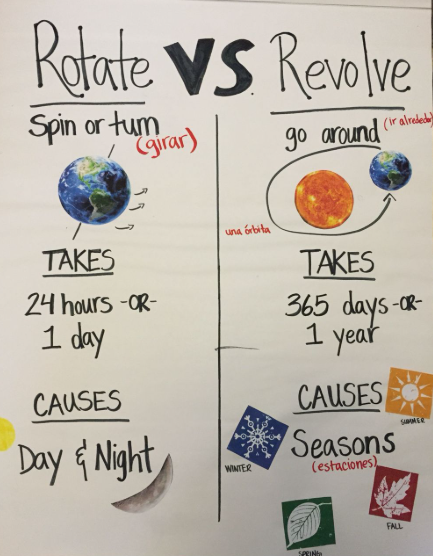 Rotate VS. Revolve
Spin or turn
(girar)
TAKES
24 hours -OR-
1 day
CAUSES
Day & Night
go around
(ir alrededor)
una órbita
TAKES
365 days -OR-
1 year
CAUSES
SUMMER
Seasons
(estaciones)
WINTER
FALL
SPRING